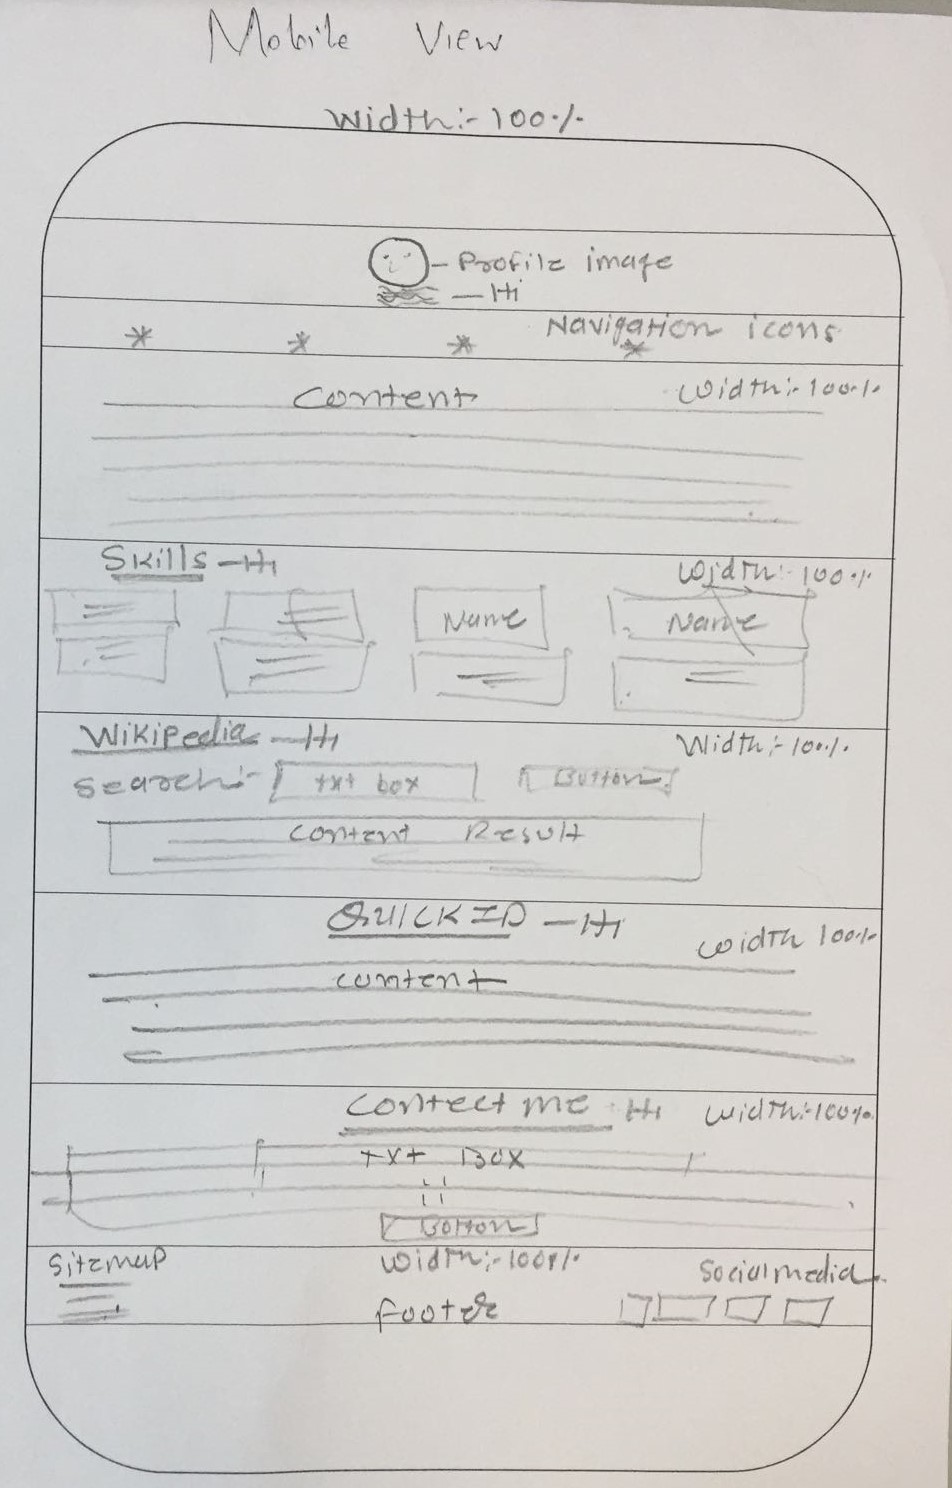 Mobile View
Width:- 100%
- Profile image
- H1
Navigation icons
Content Width:- 100%
Skills - H1 Width:- 100%
Name Name
Wikipedia - H1 Width:- 100%
Search:- txt box Button
Content Result
QUICK ID - H1
Width 100%
content
Contect me H1 Width:- 100%
txt Box
Botton
Sitemap Width:- 100% Social media
Footer